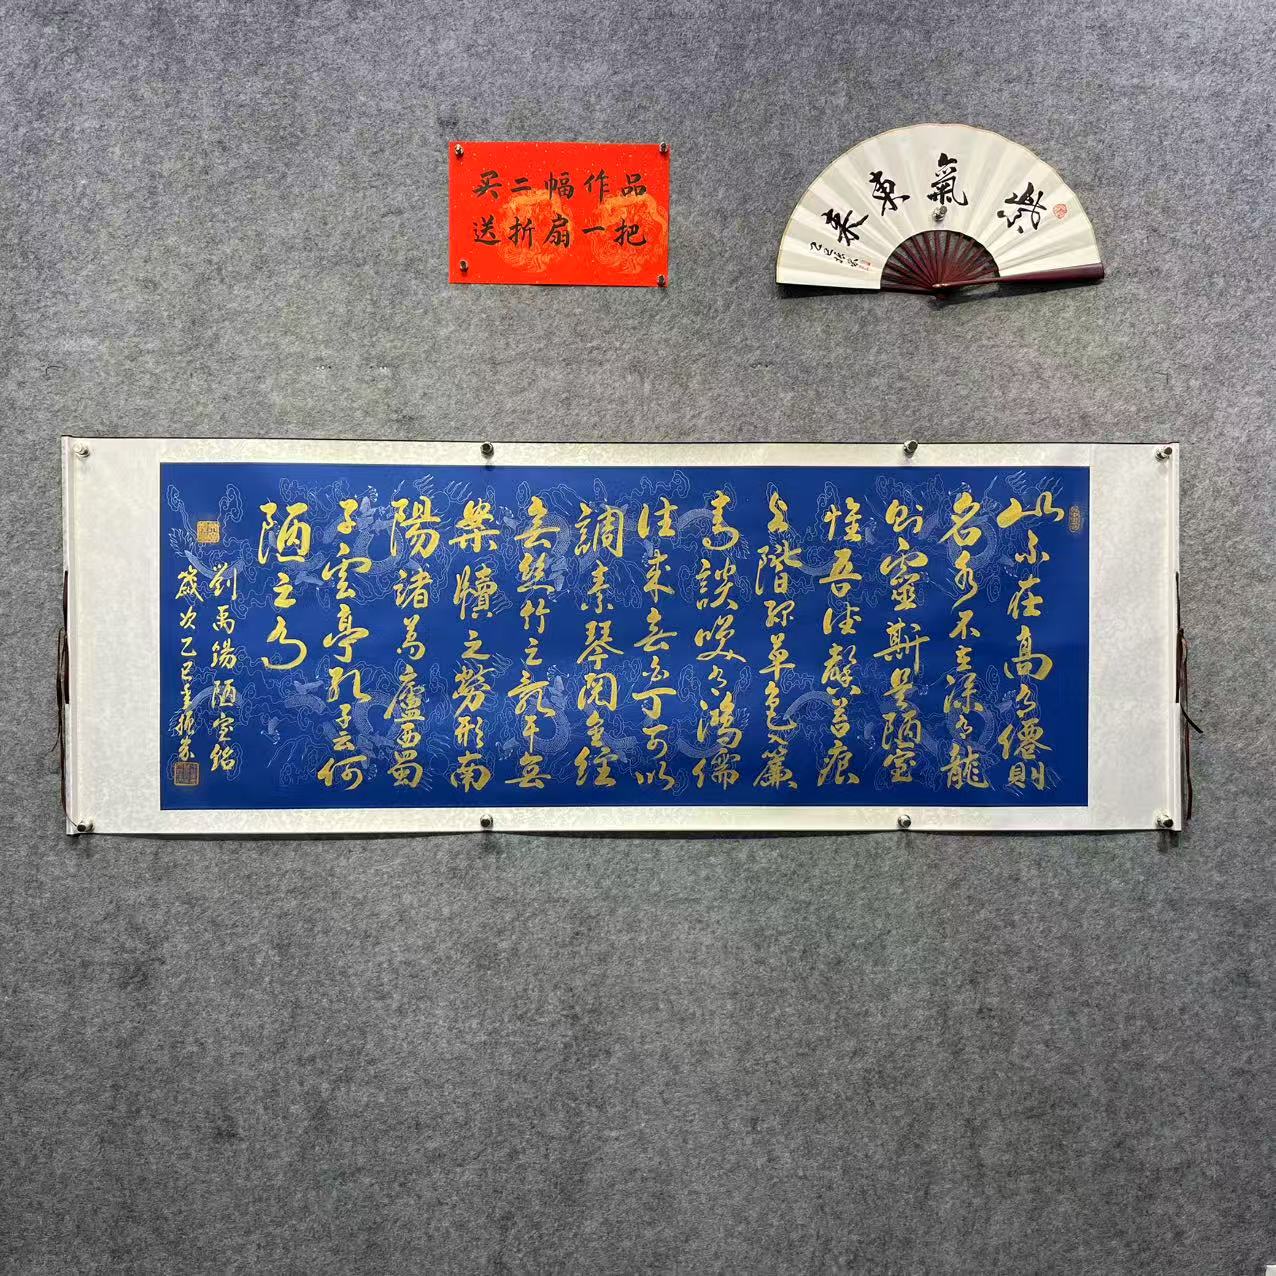 买二幅作品
送折扇一把
紫氣東來
乙巳
山不在高有僊則
名水不在深有龍
則靈斯是陋室
惟吾德馨苔痕
上階綠草色入簾
青談咲有鴻儒
往來無白丁可以
調素琴閱金經
無絲竹之亂耳無
案牘之勞形南
陽諸葛廬西蜀
子雲亭孔子云何
陋之有
劉禹錫陋室銘
歲次乙巳